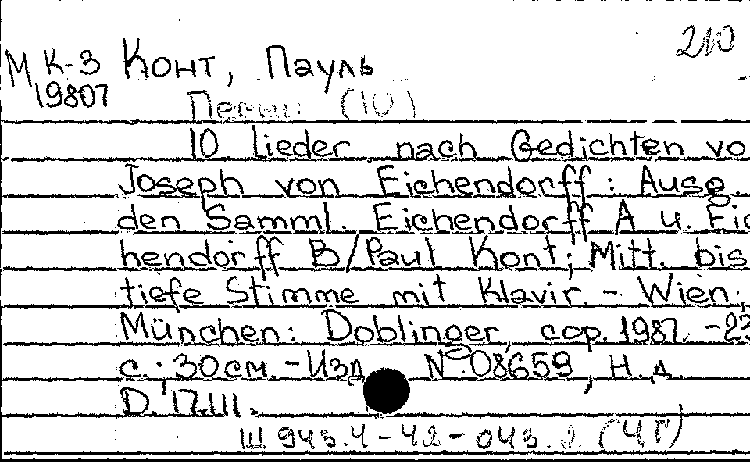 210
М К-3 Конт, Пауль
19807
Песни (10)
10 Lieder nach Gedichten vo
Joseph von Eichendorff: Ausg.
den Samml. Eichendorff A u. Eic
hendorff B/Paul Kont; Mitt. bis
tiefe Stimme mit Klavir. - Wien;
München: Doblinger, cop. 1987. - 23
с.; 30 см. - Изд. № 08659, Н. д.
D. 17.111.
Ш 943.4-42-043.2 (4Г)